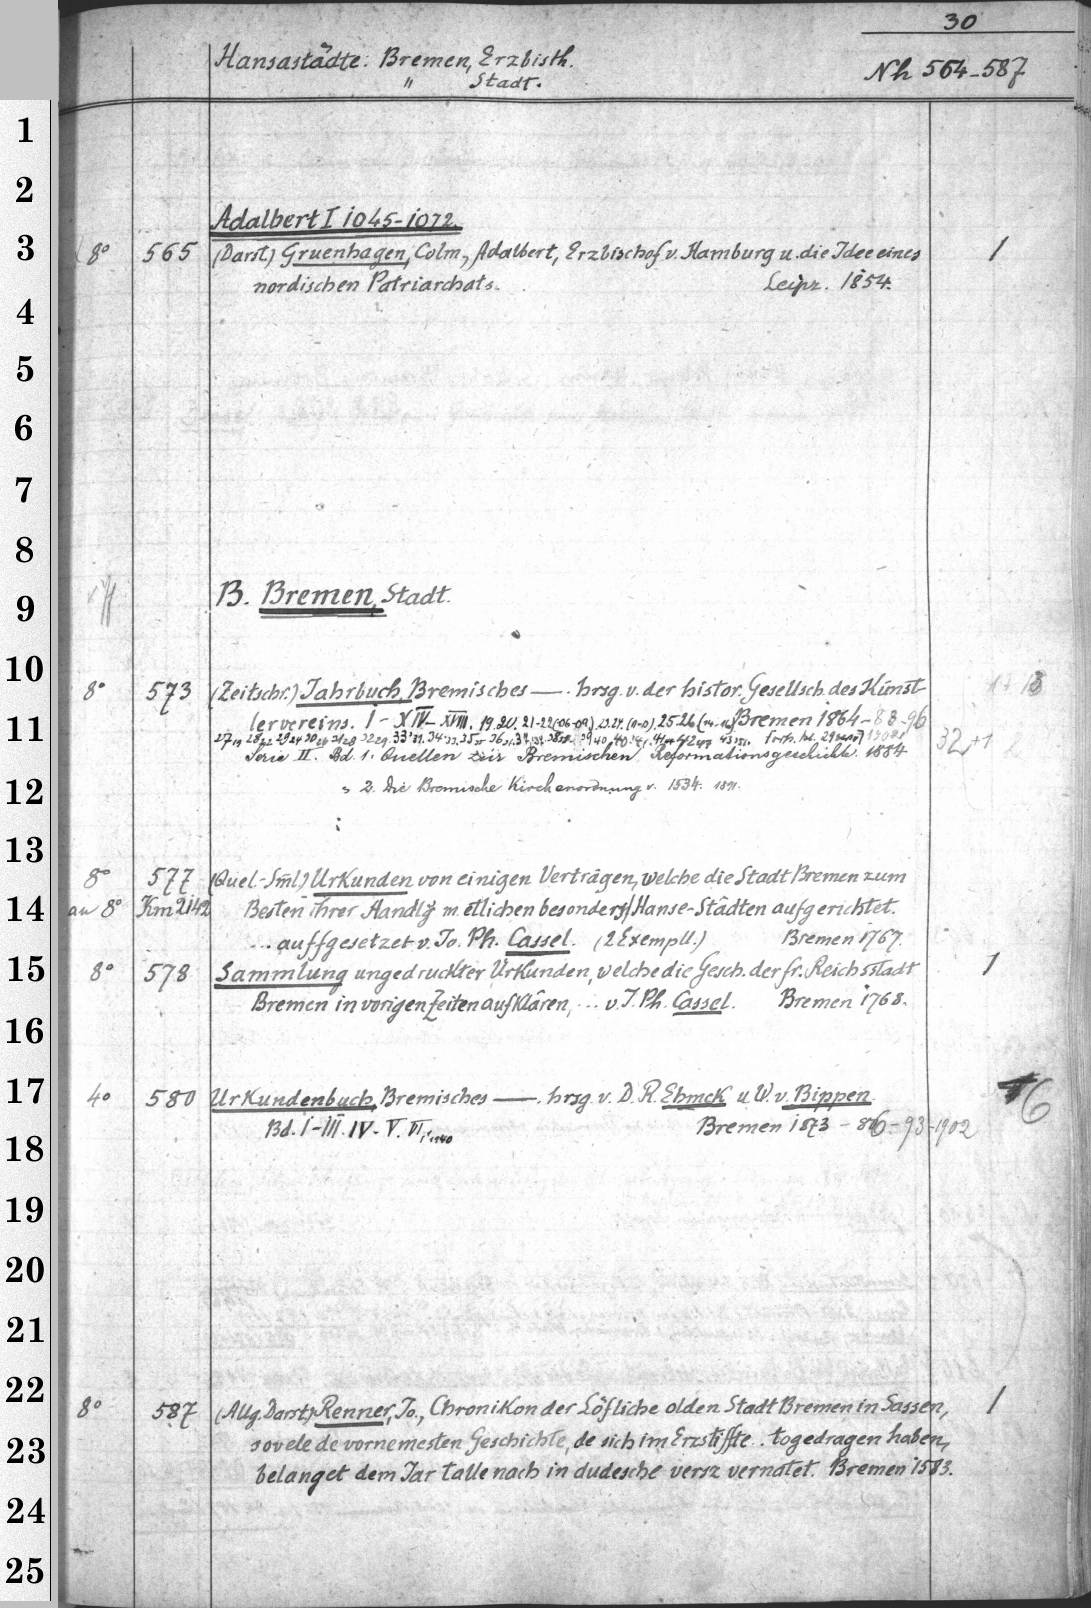 30
Hansastädte: Bremen, Erzbisth.
" Stadt.
Nh 564-587
1
2
Adalbert I 1045-1072.
3 8° 565 (Darst) Gruenhagen, Colm., Adalbert, Erzbischof v. Hamburg u. die Idee eines 1
nordischen Patriarchats. Leipz. 1854.
4
5
6
7
8
9 B. Bremen, Stadt.
10 8° 573 (Zeitschr.) Jahrbuch, Bremisches —. hrsg. v. der histor. Gesellsch. des Künst-
lervereins. I - XIV- XVIII. 19.20. 21-22 Bremen 1864-88-96
11 32+1
Serie II. Bd. 1. Quellen zur Bremischen Reformationsgeschichte. 1884
12 " 2. Die Bremische Kirchenordnung v. 1534. 1891.
13
8° 577 (Quel.-Sml) Urkunden von einigen Verträgen, welche die Stadt Bremen zum
14 an 8° Km 2142 Besten ihrer Handlg m. etlichen besonders Hanse-Städten aufgerichtet.
... auffgesetzet v. Jo. Ph. Cassel. (2 Exempll.) Bremen 1767.
15 8° 578 Sammlung ungedruckter Urkunden, welche die Gesch. der fr. Reichsstadt 1
Bremen in vorigen Zeiten aufklären, ... v. J. Ph. Cassel. Bremen 1768.
16
17 4° 580 Urkundenbuch, Bremisches —. hrsg. v. D. R. Ehmck u. W. v. Bippen. 6
Bd. I-III. IV- V. VI, 1 1940 Bremen 1873 - 86-93-1902
18
19
20
21
22
8° 587 (Allg. Darst) Renner, Jo., Chronikon der Löfliche olden Stadt Bremen in Sassen, 1
23 sovele de vornemesten Geschichte, de sich im Erzstiffte .. togedragen haben,
belanget dem Jar talle nach in dudesche versz vernatet. Bremen 1583.
24
25